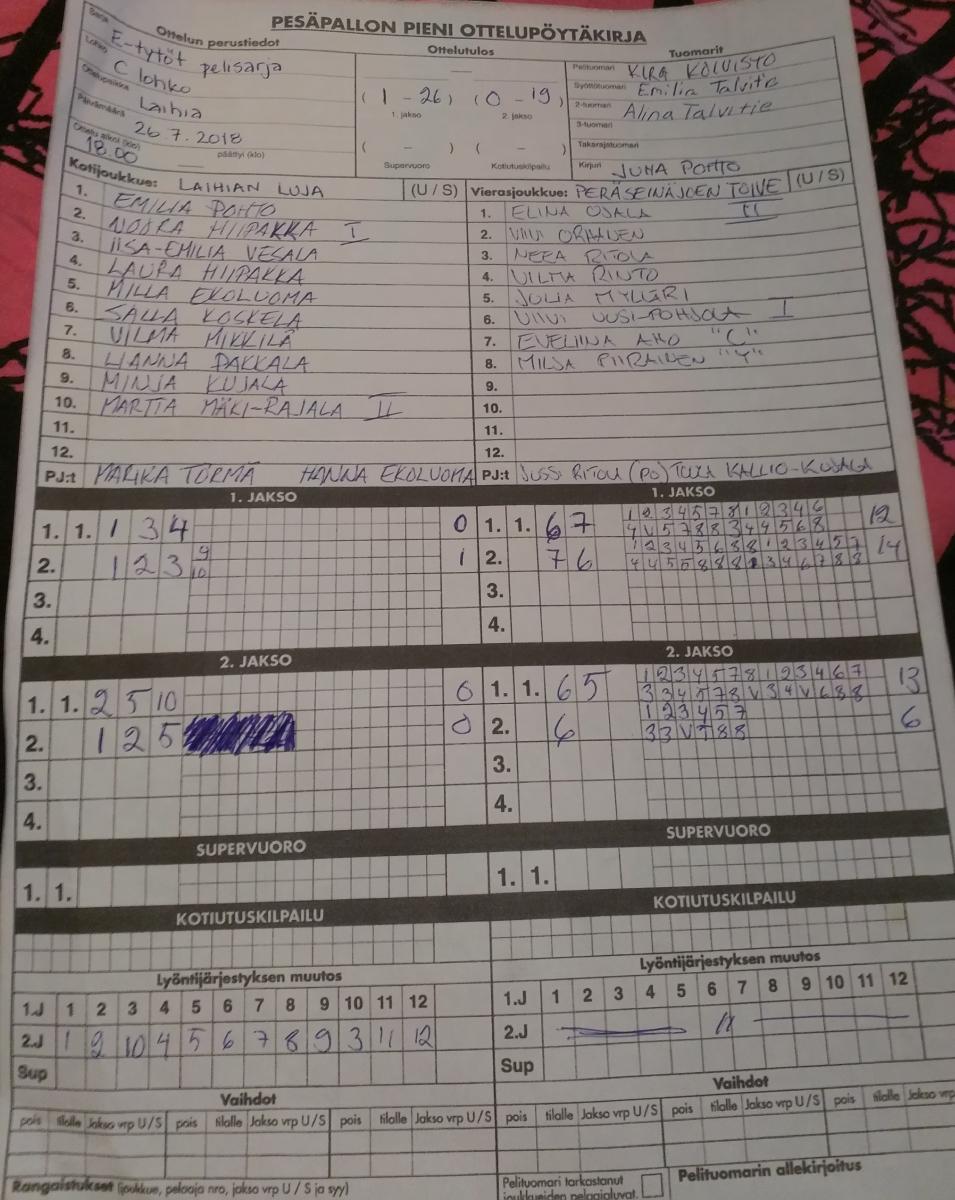 PESÄPALLON PIENI OTTELUPÖYTÄKIRJA
Ottelun perustiedot
Sarja E-tytöt pelisarja
Lohko C lohko
Ottelupaikka Laihia
Päivämäärä 26.7.2018
Ottelu alkoi (klo) 18.00 päättyi (klo)
Ottelutulos
(1 - 26) (0 - 19)
1. jakso 2. jakso
( - ) ( - )
Supervuoro Kotiutuskilpailu
Tuomarit
Pelituomari KIRA KOIVISTO
Syöttötuomari Emilia Talvitie
2-tuomari Alina Talvitie
3-tuomari
Takarajatuomari
Kirjuri JUHA POHTO
Kotijoukkue: LAIHIAN LUJA (U / S)
1. EMILIA POHTO
2. NOORA HIIPAKKA I
3. IISA-EMILIA VESALA
4. LAURA HIIPAKKA
5. MILLA EKOLUOMA
6. SALLA KOSKELA
7. VILMA MIKKILÄ
8. VIANNA PAKKALA
9. MINJA KUJALA
10. MARTTA MÄKI-RAJALA II
11.
12.
PJ:t MARIKA TÖRMÄ HANNA EKOLUOMA
Vierasjoukkue: PERÄSEINÄJOEN TOIVE (U / S)
1. ELINA OJALA II
2. VIIVI
3. NEEA RITOLA
4. VILMA RINTO
5. JULIA MYLLÄRI
6. VIIVI UUSI-POHJOLA I
7. EVELIINA AHO "C"
8. MILJA PIIRAINEN "Y"
9.
10.
11.
12.
PJ:t JUSSI RITOLA (PO) KALLIO-KUJALA
1. JAKSO
1. 1. 1 3 4 0
2. 1 2 3 9 10 1
3.
4.
1. JAKSO
1. 1. 6 7 1 2 3 4 5 7 8 1 2 3 4 6 12
4 V 5 7 8 8 3 4 4 5 6 8
2. 7 6 1 2 3 4 5 6 8 8 1 2 3 4 5 7 14
4 4 5 5 8 8 8 3 4 6 7 8 8
3.
4.
2. JAKSO
1. 1. 2 5 10 0
2. 1 2 5 0
3.
4.
2. JAKSO
1. 1. 6 5 1 2 3 4 5 7 8 1 2 3 4 6 7 13
3 3 4 5 7 8 V 3 4 V 6 8 8
2. 6 1 2 3 4 5 7 6
3 3 V 7 8 8
3.
4.
SUPERVUORO
1. 1.
SUPERVUORO
1. 1.
KOTIUTUSKILPAILU
KOTIUTUSKILPAILU
Lyöntijärjestyksen muutos
1.J 1 2 3 4 5 6 7 8 9 10 11 12
2.J 1 2 10 4 5 6 7 8 9 3 11 12
Sup
Lyöntijärjestyksen muutos
1.J 1 2 3 4 5 6 7 8 9 10 11 12
2.J — 11 —
Sup
Vaihdot
pois tilalle Jakso vrp U / S pois tilalle Jakso vrp U / S pois tilalle Jakso vrp U / S
Vaihdot
pois tilalle Jakso vrp U / S pois tilalle Jakso vrp U / S pois tilalle Jakso vrp
Rangaistukset (joukkue, pelaaja nro, jakso vrp U / S ja syy)
Pelituomari tarkastanut
joukkueiden pelaajaluvat.
Pelituomarin allekirjoitus